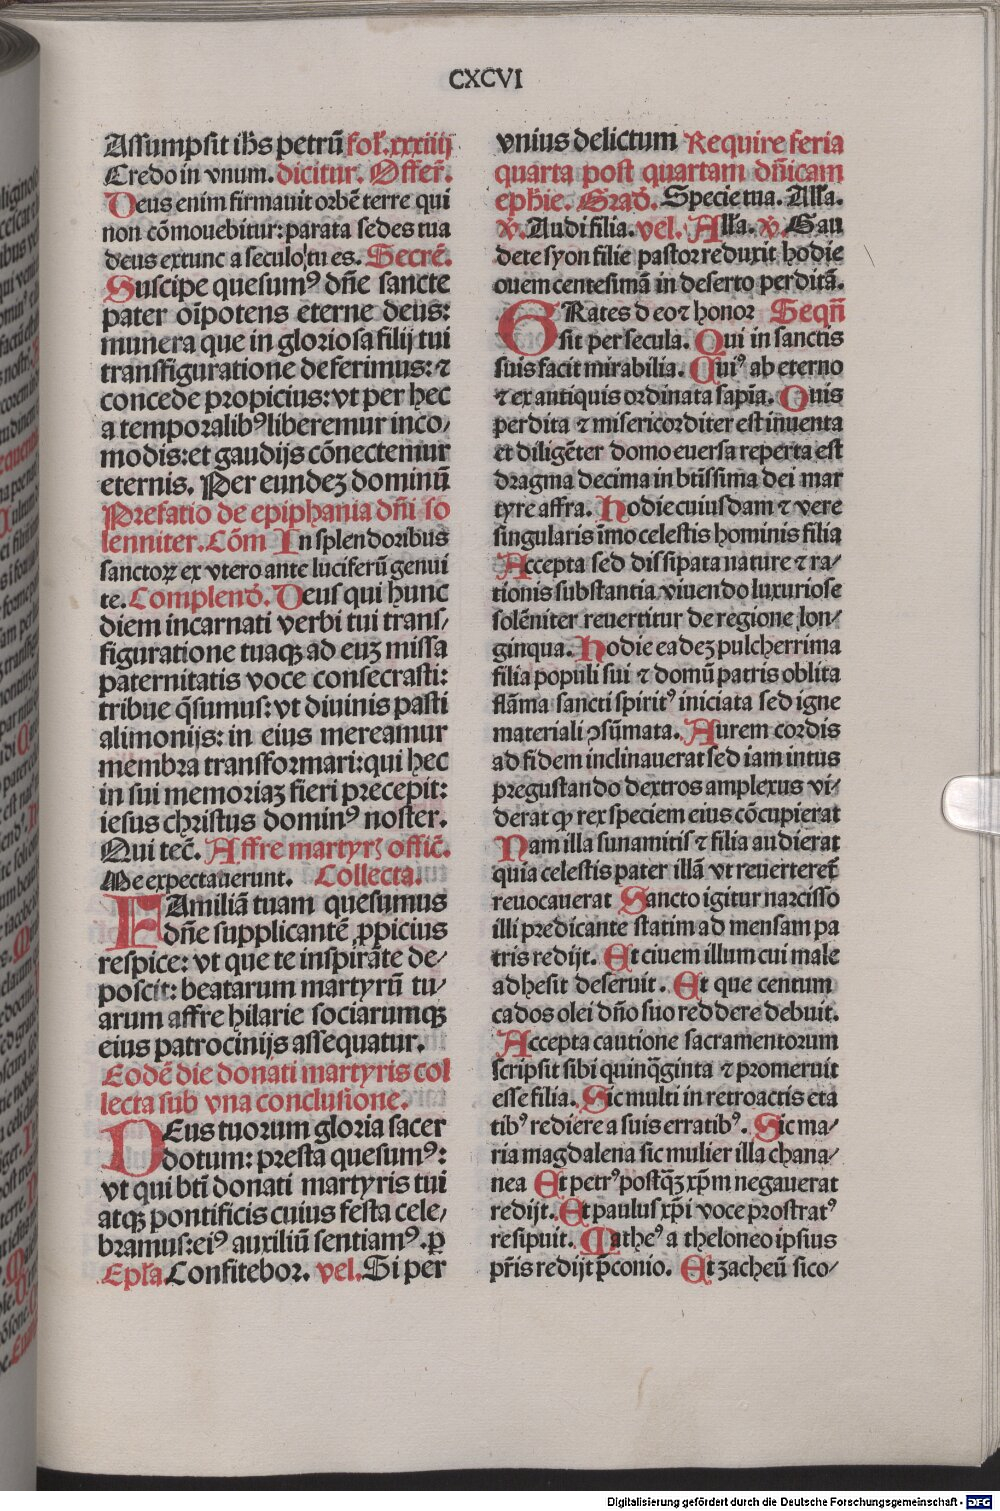 CXCVI
Assumpsit ihs petrū fol'.xxxiiij
Credo in vnum. dicitur. Offer̄.
Deus enim firmauit orbē terre qui
non cōmouebitur: parata sedes tua
deus extunc a seculo tu es. Secrē.
Suscipe quesumꝰ dñe sancte
pater oīpotens eterne deus:
munera que in gloriosa filij tui
transfiguratione deferimus: ⁊
concede propicius: vt per hec
a temporalibꝰ liberemur inco/
modis: et gaudijs cōnectemur
eternis. Per eundeꝫ dominū
Prefatio de epiphania dñi so
lenniter. Cōm In splendoribus
sanctoꝝ ex vtero ante luciferū genui
te. Complend̄. Deus qui hunc
diem incarnati verbi tui trans/
figuratione tuaqꝫ ad euꝫ missa
paternitatis voce consecrasti:
tribue q̄sumus: vt diuinis pasti
alimonijs: in eius mereamur
membra transformari: qui hec
in sui memoriaꝫ fieri precepit:
iesus christus dominꝰ noster.
Qui tec̄. Affre martyrꝭ offic̄.
Me expectauerunt. Collecta.
FAmiliā tuam quesumus
dñe supplicantē ꝓpicius
respice: vt que te inspirāte de/
poscit: beatarum martyrū tu/
arum affre hilarie sociarumqꝫ
eius patrocinijs assequatur.
Eodē die donati martyris col
lecta sub vna conclusione.
DEus tuorum gloria sacer
dotum: presta quesumꝰ:
vt qui bt̄i donati martyris tui
atqꝫ pontificis cuius festa cele/
bramus: eiꝰ auxiliū sentiamꝰ. ꝑ
Epl̄a Confitebor. vel. Si per
vnius delictum Require feria
quarta post quartam dñicam
eph̄ie. Grad̄. Specie tua. All̄a.
℣. Audi filia. vel. All̄a. ℣. Gau
dete syon filie pastor reduxit hodie
ouem centesimā in deserto perditā.
GRates deo ⁊ honor Seqn̄
sit per secula. Qui in sanctis
suis facit mirabilia. Cuiꝰ ab eterno
⁊ ex antiquis ordinata sap̄ia. Ouis
perdita ⁊ misericorditer est inuenta
et diligēter domo euersa reperta est
dragma decima in bt̄issima dei mar
tyre affra. Hodie cuiusdam ⁊ vere
singularis imo celestis hominis filia
Accepta sed dissipata nature ⁊ ra/
tionis substantia viuendo luxuriose
solēniter reuertitur de regione lon/
ginqua. Hodie eadeꝫ pulcherrima
filia populi sui ⁊ domū patris oblita
flāma sancti spiritꝰ iniciata sed igne
materiali ꝯsūmata. Aurem cordis
ad fidem inclinauerat sed iam intus
pregustando dextros amplexus vi/
derat qꝫ rex speciem eius cōcupierat
Nam illa sunamitis ⁊ filia audierat
quia celestis pater illā vt reuerteret̄
reuocauerat Sancto igitur narcisso
illi predicante statim ad mensam pa
tris redijt. Et ciuem illum cui male
adhesit deseruit. Et que centum
cados olei dño suo reddere debuit.
Accepta cautione sacramentorum
scripsit sibi quinq̄ginta ⁊ promeruit
esse filia. Sic multi in retroactis eta
tibꝰ rediere a suis erratibꝰ. Sic ma/
ria magdalena sic mulier illa chana/
nea Et petrꝰ postq̄ꝫ xp̄m negauerat
redijt. Et paulus xp̄i voce prostratꝰ
resipuit. Matheꝰ a theloneo ipsius
pr̄is redijt p̄conio. Et zacheū sico/
Digitalisierung gefördert durch die Deutsche Forschungsgemeinschaft - DFG